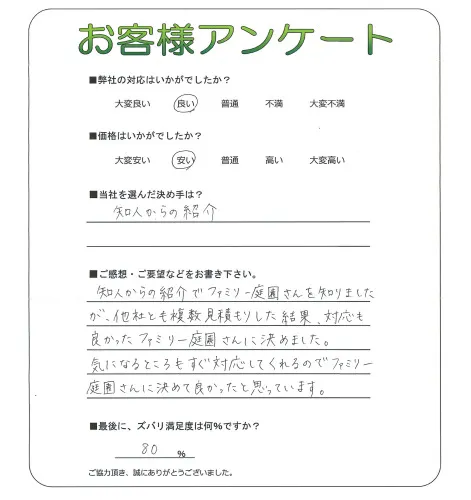 お客様アンケート
■弊社の対応はいかがでしたか？
大変良い 良い 普通 不満 大変不満
■価格はいかがでしたか？
大変安い 安い 普通 高い 大変高い
■当社を選んだ決め手は？
知人からの紹介
■ご感想・ご要望などをお書き下さい。
知人からの紹介でファミリー庭園さんを知りました
が、他社とも複数見積もりした結果、対応も
良かったファミリー庭園さんに決めました。
気になるところもすぐ対応してくれるのでファミリー
庭園さんに決めて良かったと思っています。
■最後に、ズバリ満足度は何％ですか？
80 ％
ご協力頂き、誠にありがとうございました。